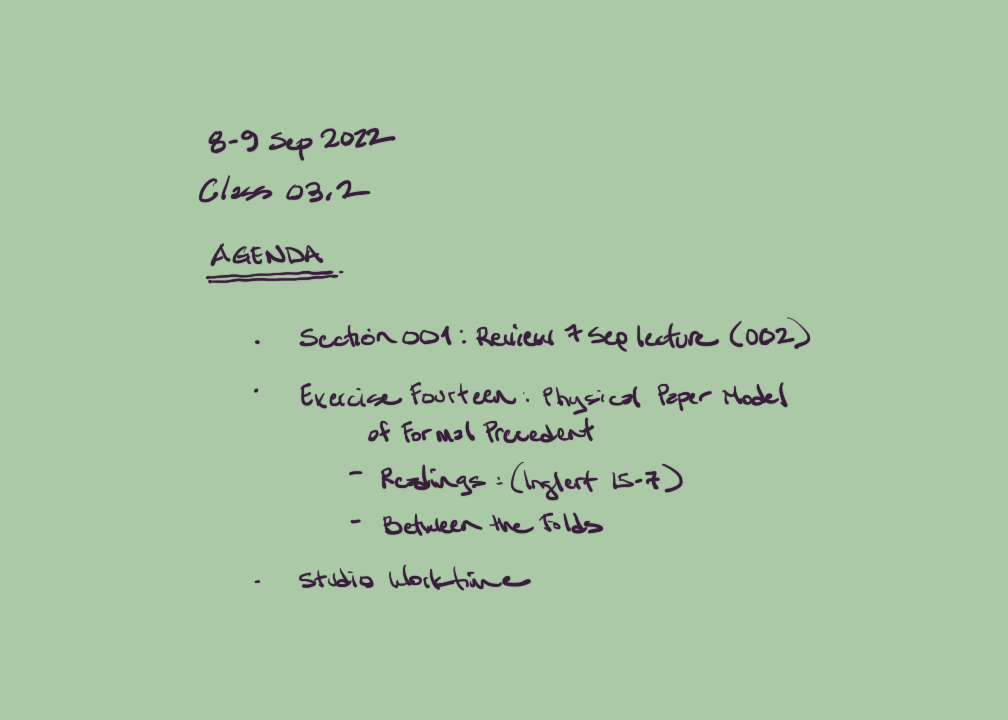 8-9 Sep 2022
Class 03.2
AGENDA
· Section 001: Review 7 Sep lecture (002)
· Exercise Fourteen: Physical Paper Model
of Formal Precedent
- Readings: (Inglert 15-7)
- Between the Folds
· Studio Worktime